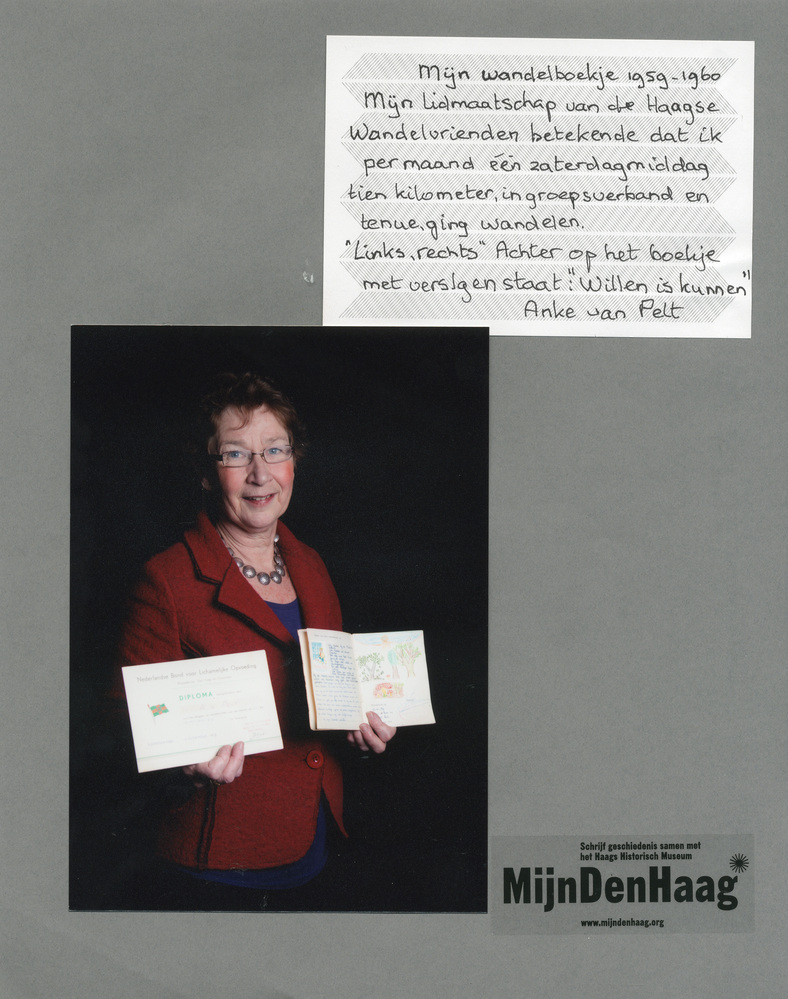 Mijn wandelboekje 1959-1960
Mijn Lidmaatschap van de Haagse
Wandelvrienden betekende dat ik
per maand één zaterdagmiddag
tien kilometer, in groepsverband en
tenue, ging wandelen.
"Links, rechts" Achter op het boekje
met verslgen staat: "Willen is kunnen"
Anke van Pelt
Nederlandse Bond voor Lichamelijke Opvoeding
DIPLOMA
Schrijf geschiedenis samen met
het Haags Historisch Museum
MijnDenHaag
www.mijndenhaag.org